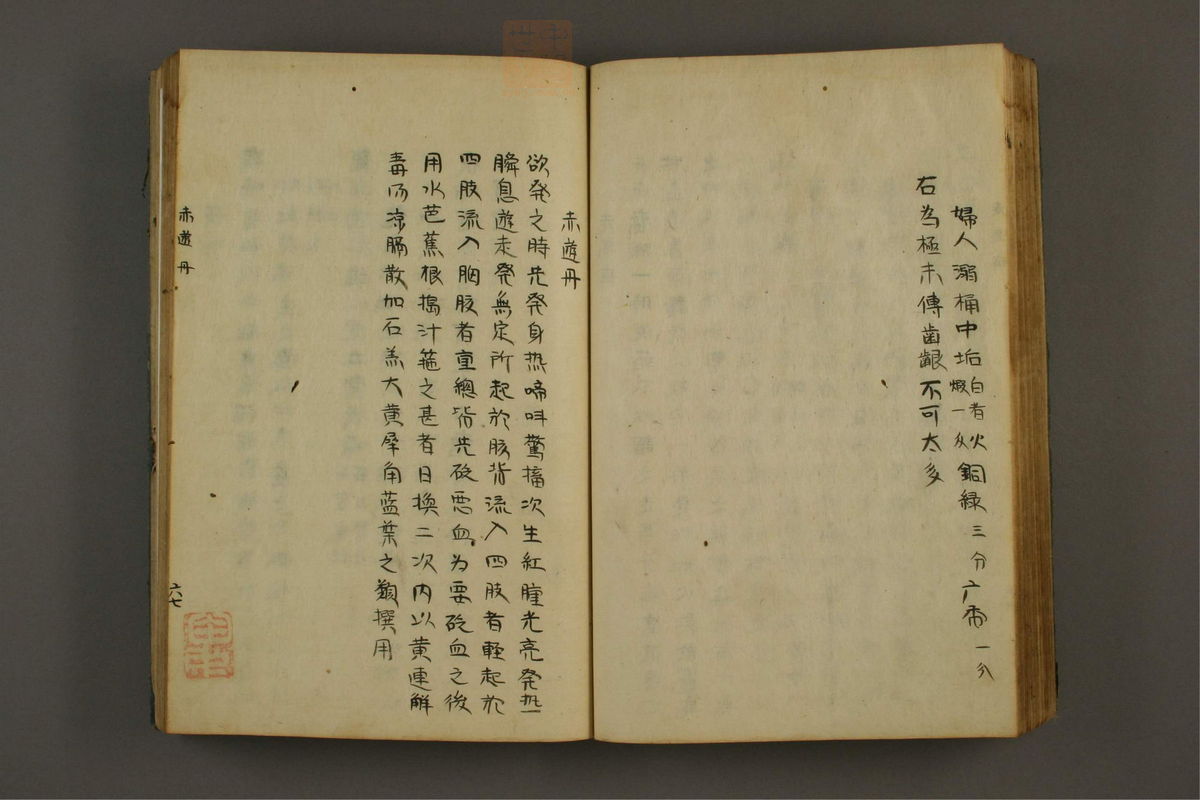 婦人溺桶中垢白者火煆一分銅緑三分广香一分
右為極末傅齒齦不可太多
赤遊丹
欲発之時先発身热啼叫驚搐次生紅腫光亮発热
瞬息遊走発無定所起於腹背流入四肢者軽起於
四肢流入胸腹者重總皆先砭悪血為要砭血之後
用水芭蕉根搗汁箍之甚者日換二次内以黄連解
毒湯凉膈散加石羔大黄犀角蓝葉之類撰用
赤遊丹
六七